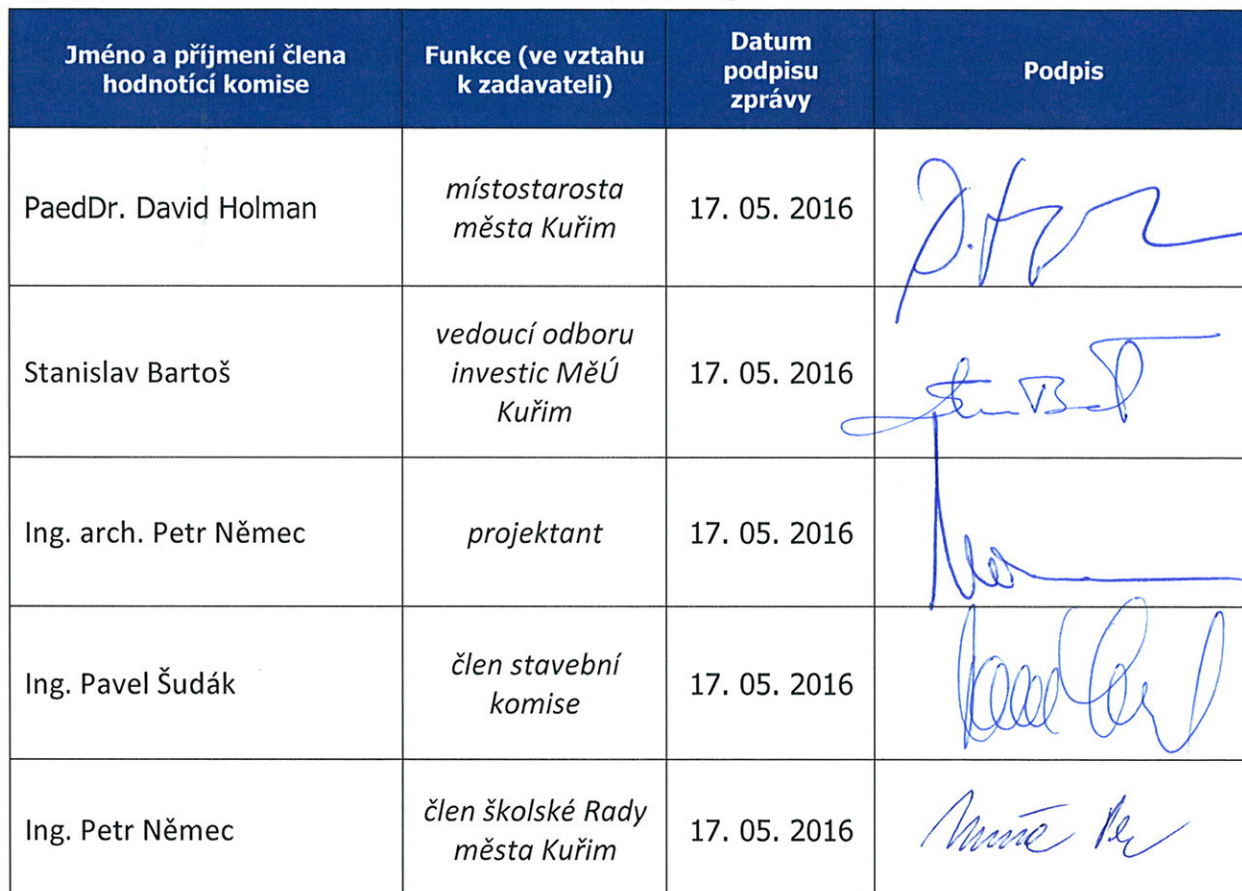 Jméno a příjmení člena
hodnotící komise
Funkce (ve vztahu
k zadavateli)
Datum
podpisu
zprávy
Podpis
PaedDr. David Holman
místostarosta
města Kuřim
17. 05. 2016
Stanislav Bartoš
vedoucí odboru
investic MěÚ
Kuřim
17. 05. 2016
Ing. arch. Petr Němec
projektant
17. 05. 2016
Ing. Pavel Šudák
člen stavební
komise
17. 05. 2016
Ing. Petr Němec
člen školské Rady
města Kuřim
17. 05. 2016